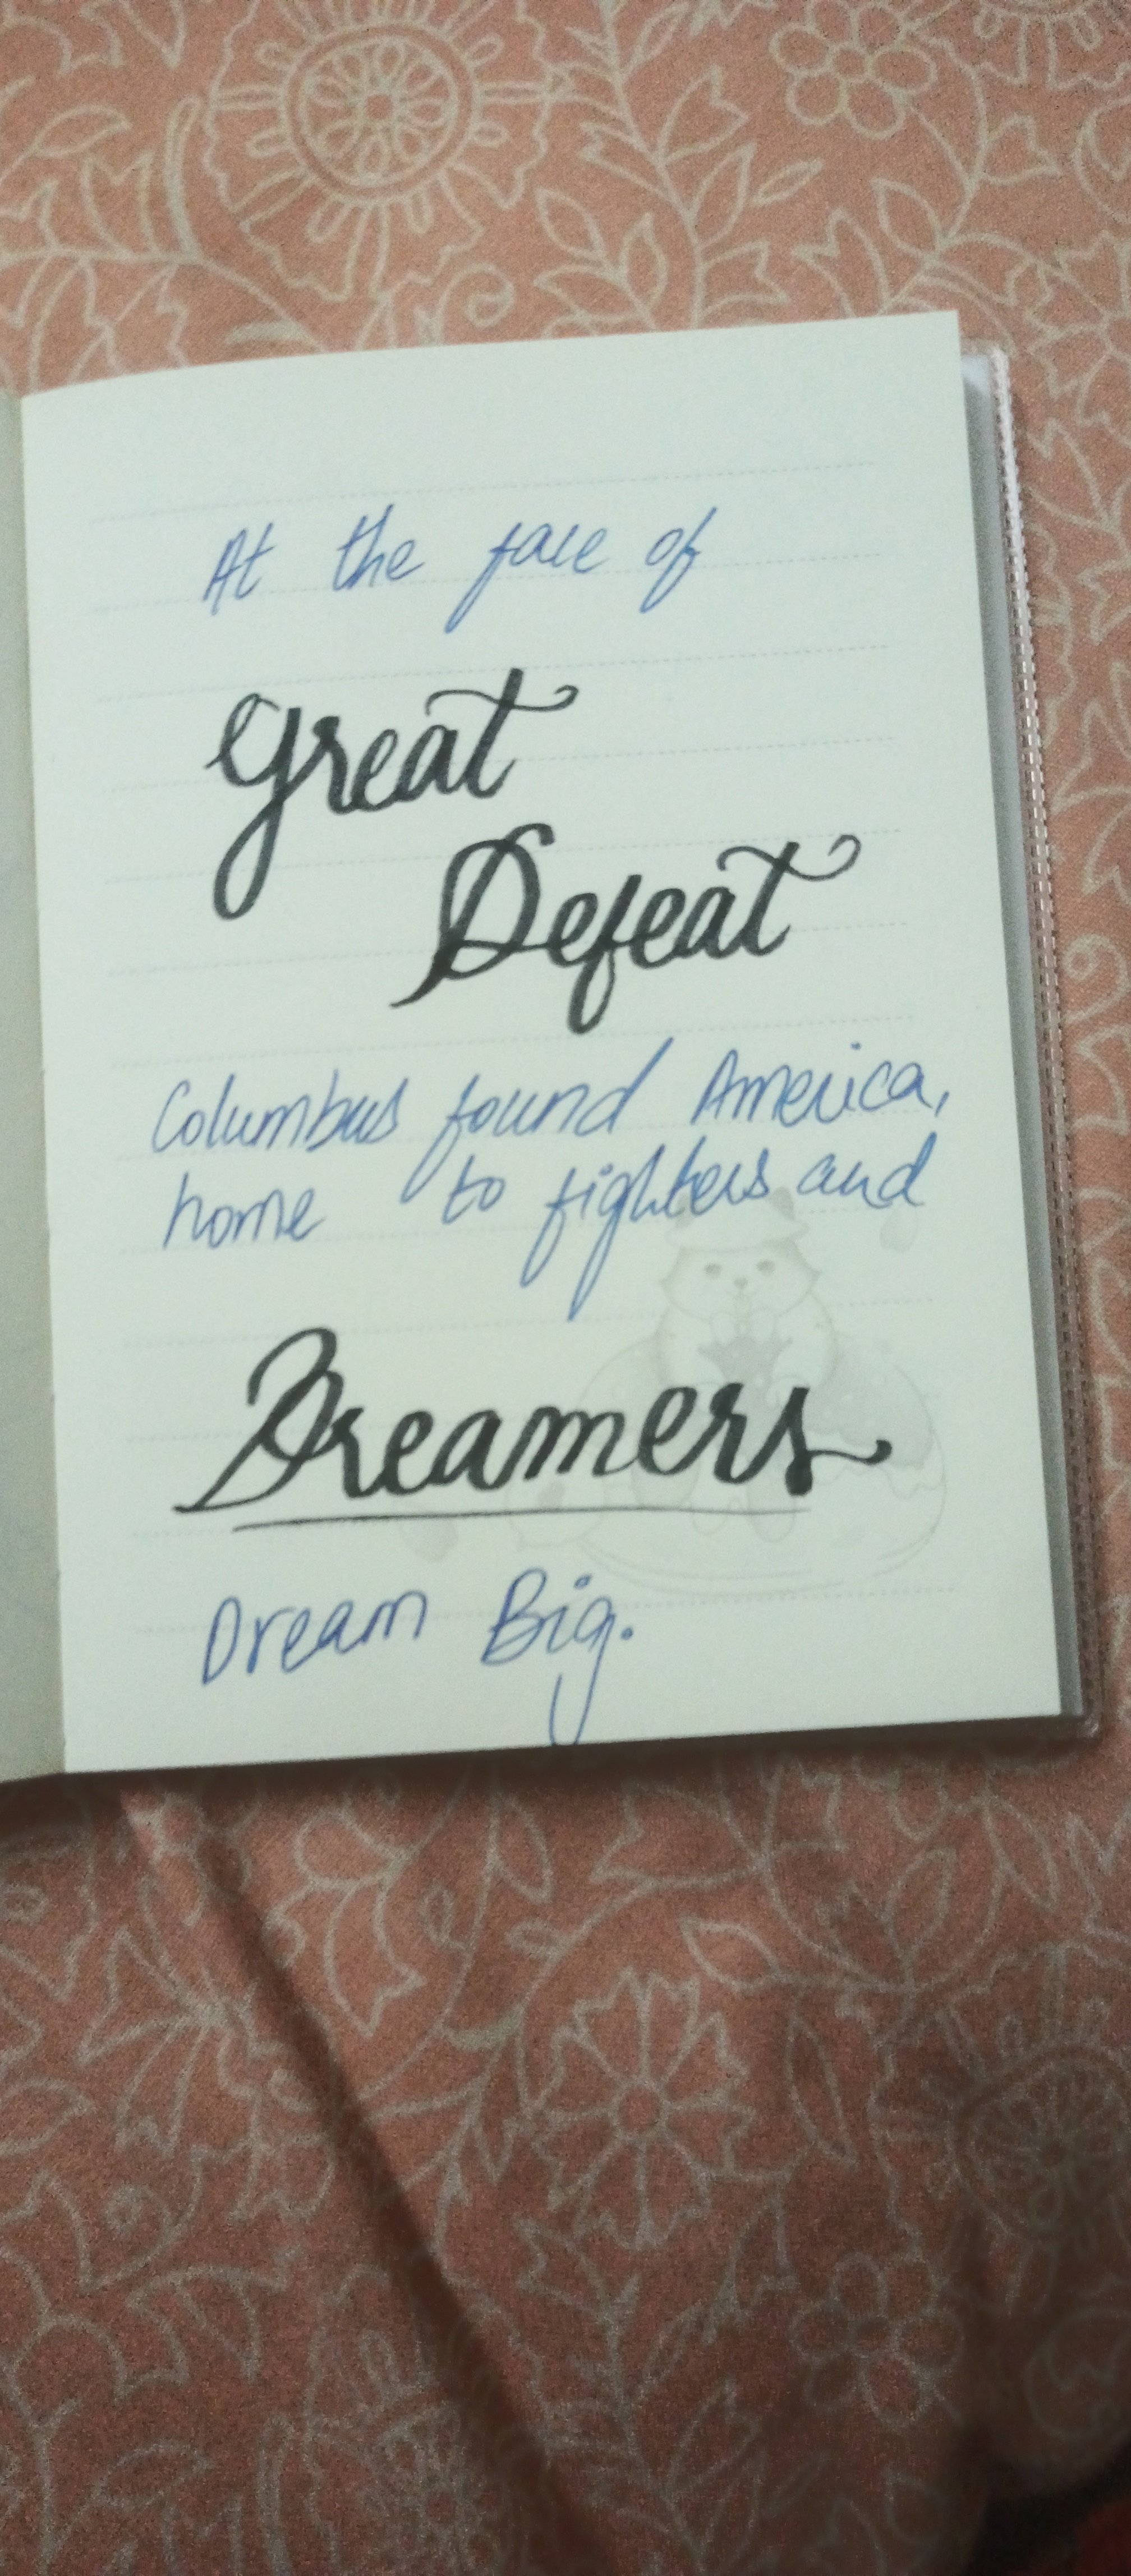 At the face of
Great
Defeat
Columbus found America,
home to fighters and
Dreamers
Dream Big.